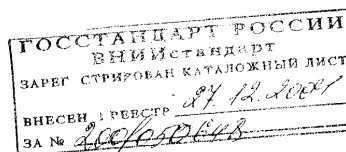 ГОССТАНДАРТ РОССИИ
ВНИИстандарт
ЗАРЕГ СТРИРОВАН КАТАЛОЖНЫЙ ЛИСТ
ВНЕСЕН РЕЕСТР 27.12.2001
ЗА №